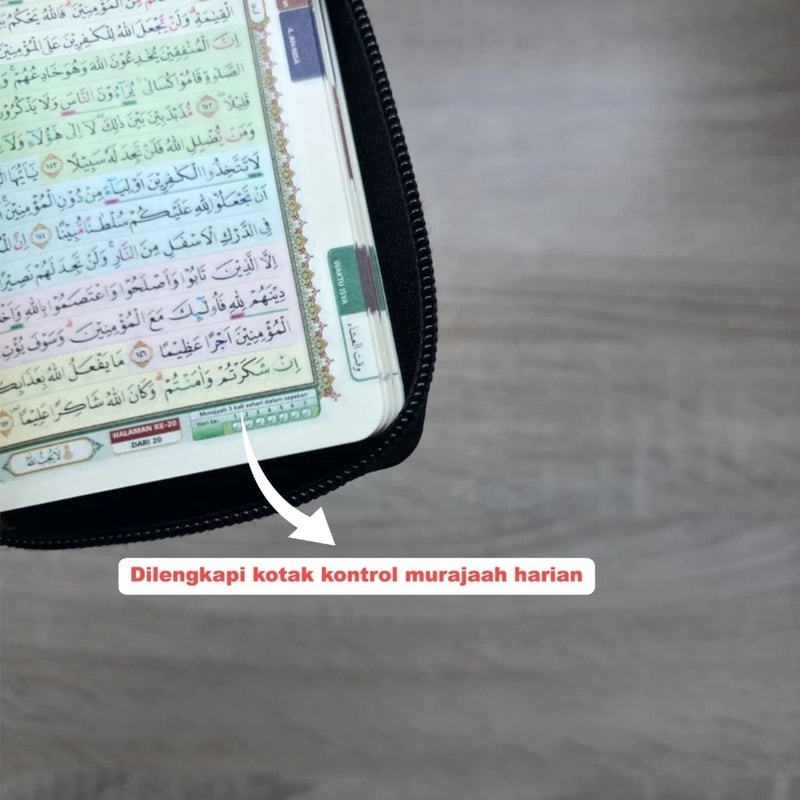 الْقِيٰمَةِ ۗ وَلَنْ يَّجْعَلَ اللّٰهُ لِلْكٰفِرِيْنَ عَلَى الْمُؤْمِنِيْنَ
اِنَّ الْمُنٰفِقِيْنَ يُخٰدِعُوْنَ اللّٰهَ وَهُوَ خَادِعُهُمْ ۚ
الصَّلٰوةِ قَامُوْا كُسَالٰى يُرَاۤءُوْنَ النَّاسَ وَلَا يَذْكُرُوْنَ
قَلِيْلًا ۖ ١٤٢ مُّذَبْذَبِيْنَ بَيْنَ ذٰلِكَ لَآ اِلٰى هٰٓؤُلَاۤءِ وَلَآ
وَمَنْ يُّضْلِلِ اللّٰهُ فَلَنْ تَجِدَ لَهٗ سَبِيْلًا ١٤٣ يٰٓاَيُّهَا
لَا تَتَّخِذُوا الْكٰفِرِيْنَ اَوْلِيَاۤءَ مِنْ دُوْنِ الْمُؤْمِنِيْنَ ۚ
اَنْ تَجْعَلُوْا لِلّٰهِ عَلَيْكُمْ سُلْطٰنًا مُّبِيْنًا ١٤٤ اِنَّ
فِى الدَّرْكِ الْاَسْفَلِ مِنَ النَّارِ ۚ وَلَنْ تَجِدَ لَهُمْ نَصِيْرًا
اِلَّا الَّذِيْنَ تَابُوْا وَاَصْلَحُوْا وَاعْتَصَمُوْا بِاللّٰهِ
دِيْنَهُمْ لِلّٰهِ فَاُولٰۤىِٕكَ مَعَ الْمُؤْمِنِيْنَ ۗ وَسَوْفَ يُؤْتِ
الْمُؤْمِنِيْنَ اَجْرًا عَظِيْمًا ١٤٦ مَا يَفْعَلُ اللّٰهُ
اِنْ شَكَرْتُمْ وَاٰمَنْتُمْ ۗ وَكَانَ اللّٰهُ شَاكِرًا عَلِيْمًا
4. AN-NISA'
WAKTU ISYA
وقت العشاء
Murajaah 5 kali sehari dalam sepekan
Hari ke: 1 2 3 4 5 6 7
HALAMAN KE-20
DARI 20
لَا يُحِبُّ اللّٰهُ
Dilengkapi kotak kontrol murajaah harian